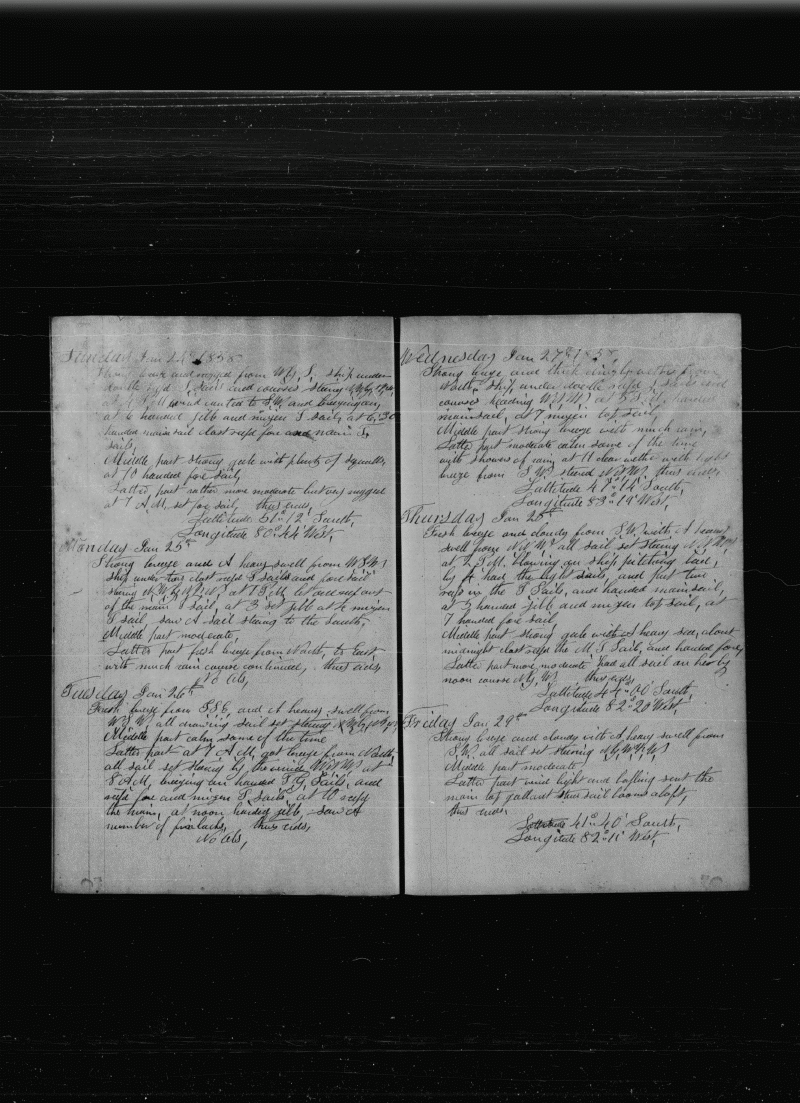 Sunday Jan 24th 1858
breeze and rugged from W by S, ship under
double reefd T Sails and courses steering N W by W
P M wind canted to S.W. and breezing on,
at 6 handed jibb and mizen T sail, at 6,30
handed main sail close reefd fore and main T,
sails,
Middle part strong gale with plenty of squalls
at 10 handed fore sail,
Latter part rather more moderate but very rugged
at 7 A.M. set fore sail, thus ends,
Lattitude 51° 12' South,
Longitude 80° 44' West,
Monday Jan 25th
Strong breeze and A heavy swell from W.S.W.
ship under two close reefd T sails and fore sail
steering at 1 P.M. let out reef out
of the main T sail, at 3 set jibb at 4 mizen
T sail, saw A sail steering to the South,
Middle part moderate,
Latter part fresh breeze from North, to East
with much rain course continued, thus ends,
No Obs,
Tuesday Jan 26th
Fresh breeze from S.S.E, and A heavy swell from
W.S.W. all drawing sail set steering N.W. by W
Middle part calm some of the time
Latter part at 7 A.M. got breeze from North,
all sail set steering by the wind at
8 A.M, breezing on handed T, G, Sails, and
reefd fore and mizen T Sails, at 10 reefd
the main, at noon handed jibb, saw A
number of finbacks, thus ends,
No Obs,
Wednesday Jan 27th 1858,
Strong breeze and thick weather from
North, ship under double reefd T sails and
courses heading at 5 P.M. handed
mainsail, at 7 mizen top sail,
Middle part strong breeze with much rain,
Latter part moderate calm some of the time
with showers of rain, at 11 clear wether with light
breeze from S.W. steerd thus ends,
Lattitude South,
Longitude West,
Thursday Jan 28th
Fresh breeze and cloudy from S.W. with A heavy
swell from all sail set steering
at 2 P.M. blowing on ship pitching bad,
by 4 had the light sails, and put two
reefs in the T Sails, and handed main sail,
at 5 handed jibb and mizen top sail, at
7 handed fore sail
Middle part strong gale with A heavy sea, about
midnight close reefd the M. T Sail, and handed fore,
Latter part more moderate had all sail on her by
noon course thus ends,
Lattitude 44° 06' South,
Longitude 82° 20' West,
Friday Jan 29th
Strong breeze and cloudy with A heavy swell from
S.W. all sail set steering
Middle part moderate
Latter part wind light and baffling sent the
main top gallant sail booms aloft,
thus ends,
Lattitude 41° 40' South,
Longitude 82° 11' West,